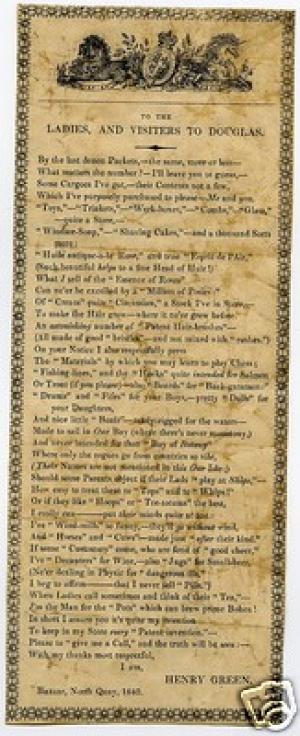 TO THE
LADIES, AND VISITERS TO DOUGLAS.
By the last dozen Packets,—the same, more or less—
What matters the number?—I'll leave you to guess,—
Some Cargoes I've got,—their Contents not a few,
Which I've purposely purchased to please—Me and you.
"Toys,"—"Trinkets,"—"Work-boxes,"—"Combs,"—"Glass,"
—quite a Store,—
"Windsor-Soap,"—"Shaving Cakes,"—and a thousand Sorts
more;
"Huile antique-à-la Rose," and true "Esprit de
(Such beautiful helps to a fine Head of Hair!)
What I sell of the "Essence of Roses"
Can ne'er be excelled by a "Million of Posies"
Of "Creams" quite "Circassian," a Stock I've in Store,—
To make the Hair grow—where it ne'er grew before.
An astonishing number of "Patent Hair-brushes"—
(All made of good "bristles"—and not mixed with "rushes.")
On your Notice I also respectfully press
The "Materials" by which you may learn to play Chess;
"Fishing-lines," and the "Hooks" quite intended for Salmon
Or Trout (if you please)—also "Boards" for "Back-gammon."
"Drums" and "Fifes" for your Boys,—pretty "Dolls" for
your Daughters,
And nice little "Boats"— rigged for the waters—
Made to sail in Our Bay (where there's never
And never intended for that "Bay of Botany"
Where only the rogues go from countries so vile,
(Their Names are not mentioned in this Our Isle.)
Should some Parents object if their Lads "play at Ships,"—
How easy to treat them to "Tops" and to "Whips!"
Or if they like "Hoops" or "Te-totums" the best,
I really can put their minds quite at rest:
I've "Wind-mills" so fancy,—they'll go without wind,
And "Horses" and "Cows"—made just "after their kind."
If some "Customers" come, who are fond of "good cheer,"
I've "Decanters" for Wine,—also "Jugs" for Small-beer,
(Ne'er dealing in Physic for "dangerous ills,"
I beg to affirm———that I never sell "Pills.")
When Ladies call sometimes and think of their "Tea,"—
I'm the Man for the "Pots" which can brew prime Bohea!
In short I assure you it's quite my intention
To keep in my Store every "Patent-invention."—
Please to "give me a Call," and the truth will be seen:—
With my thanks most respectful,
I am,
HENRY GREEN.
Bazaar, North Quay, 1840.